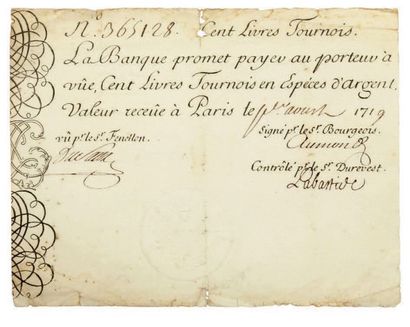 N.º 365128. Cent Livres Tournois.
La Banque promet payer au porteur à
vüe, Cent Livres Tournois en Espéces d'argent,
Valeur receüe à Paris le p.er aoust 1719
vû p.r le S.r Fenellon. Signé p.r le S.r Bourgeois.
Aumon
Contrôlé p.r le S.r Durevest.
Labastide